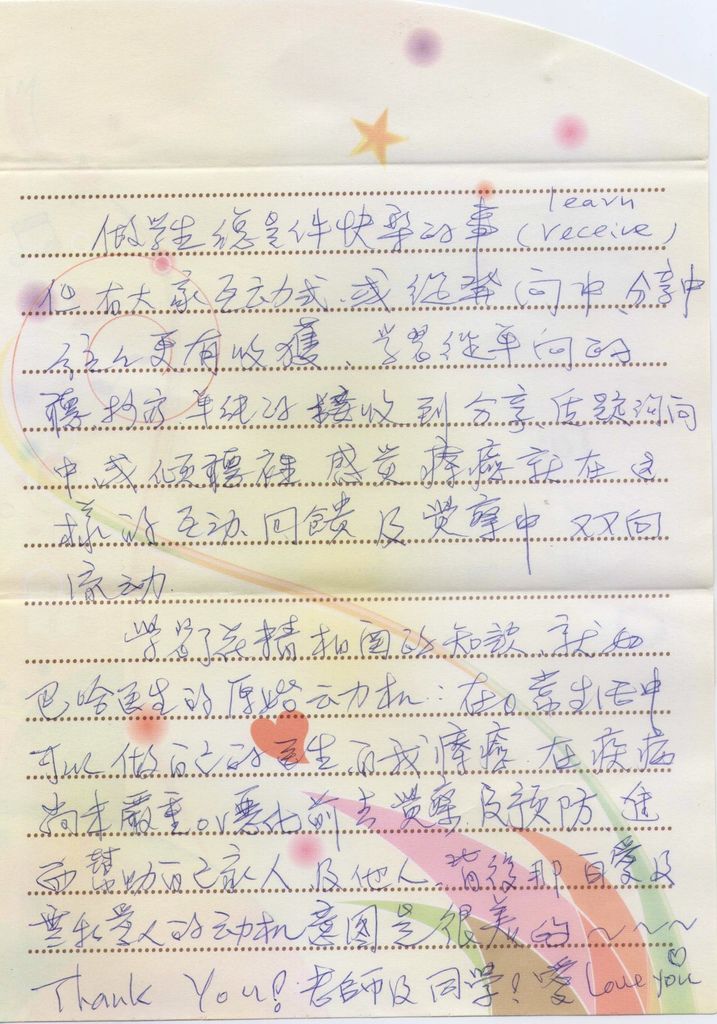 learn
做学生總是件快樂的事 (receive)
但有大家互动式、或從發问中、分享中
往往更有收獲、学習從单向的
单純的接收到分享、话题询问
中或倾聽裡 感覚療癒就在这
樣的互动、回饋及覚察中 双向
流动.
学習了花精相関的知識、就如
巴哈医生的原始动机：在日常生活中
可以做自己的医生 自我療癒. 在疾病
尚未嚴重or惡化前去覚察及预防 進
而幫助自己家人及他人. 背後那自愛及
無私愛人的动机意图是很美的~~~
Thank You! 老師及同学! 愛 Love you